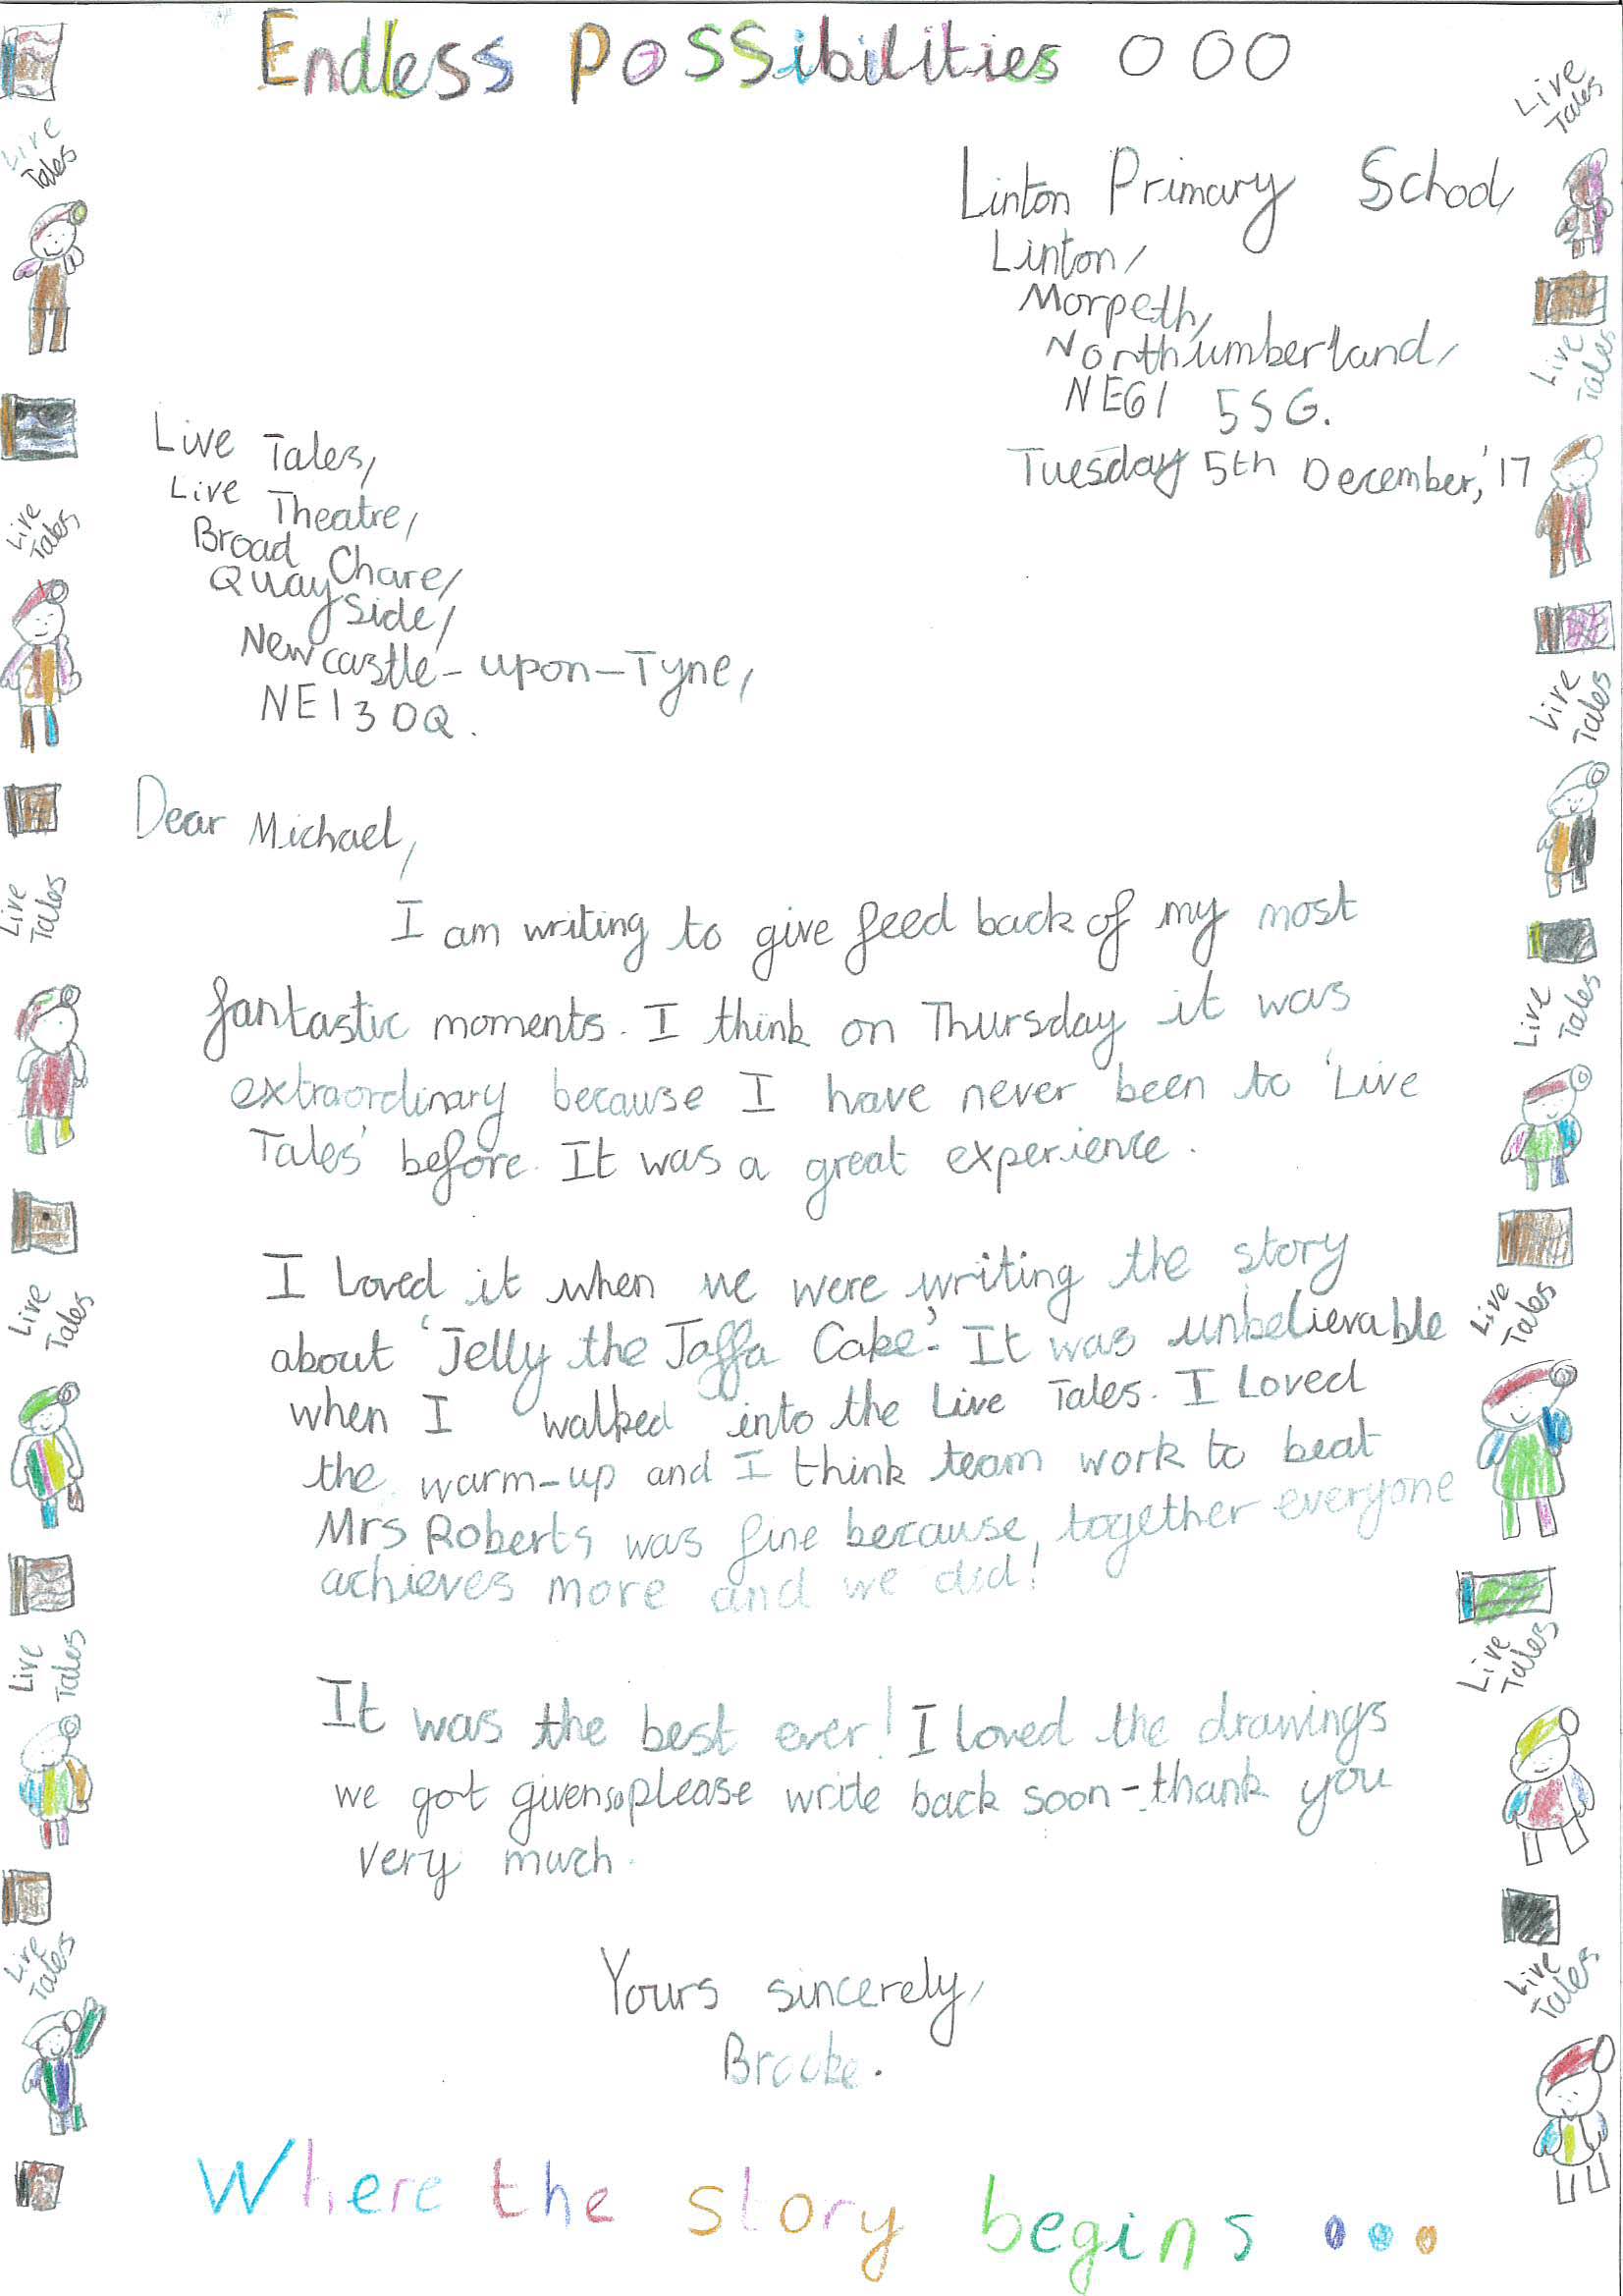 Endless Possibilities ooo
Linton Primary School,
Linton,
Morpeth,
Northumberland,
NE61 5SG.
Tuesday 5th December, '17
Live Tales,
Live Theatre,
Broad Chare,
Quay Side,
Newcastle-upon-Tyne,
NE1 3DQ.
Dear Michael,
I am writing to give feed back of my most
fantastic moments. I think on Thursday it was
extraordinary because I have never been to 'Live
Tales' before. It was a great experience.
I Loved it when we were writing the story
about 'Jelly the Jaffa Cake'. It was unbelievable
when I walked into the Live Tales. I Loved
the warm-up and I think team work to beat
Mrs Roberts was fine because, together everyone
achieves more and we did!
It was the best ever! I loved the drawings
we got given so please write back soon - thank you
very much.
Yours sincerely,
Brooke.
Where the story begins ...
Live
Tales
Live
Tales
Live
Tales
Live
Tales
Live
Tales
Live
Tales
Live
Tales
Live
Tales
Live
Tales
Live
Tales
Live
Tales
Live
Tales
Live
Tales